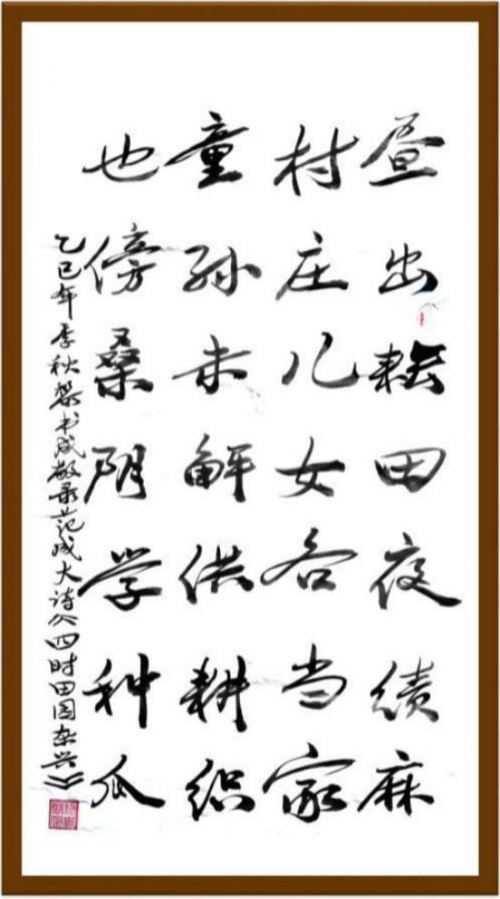 昼出耘田夜绩麻
村庄儿女各当家
童孙未解供耕织
也傍桑阴学种瓜
乙巳年季秋 书成敬录范成大诗《四时田园杂兴》